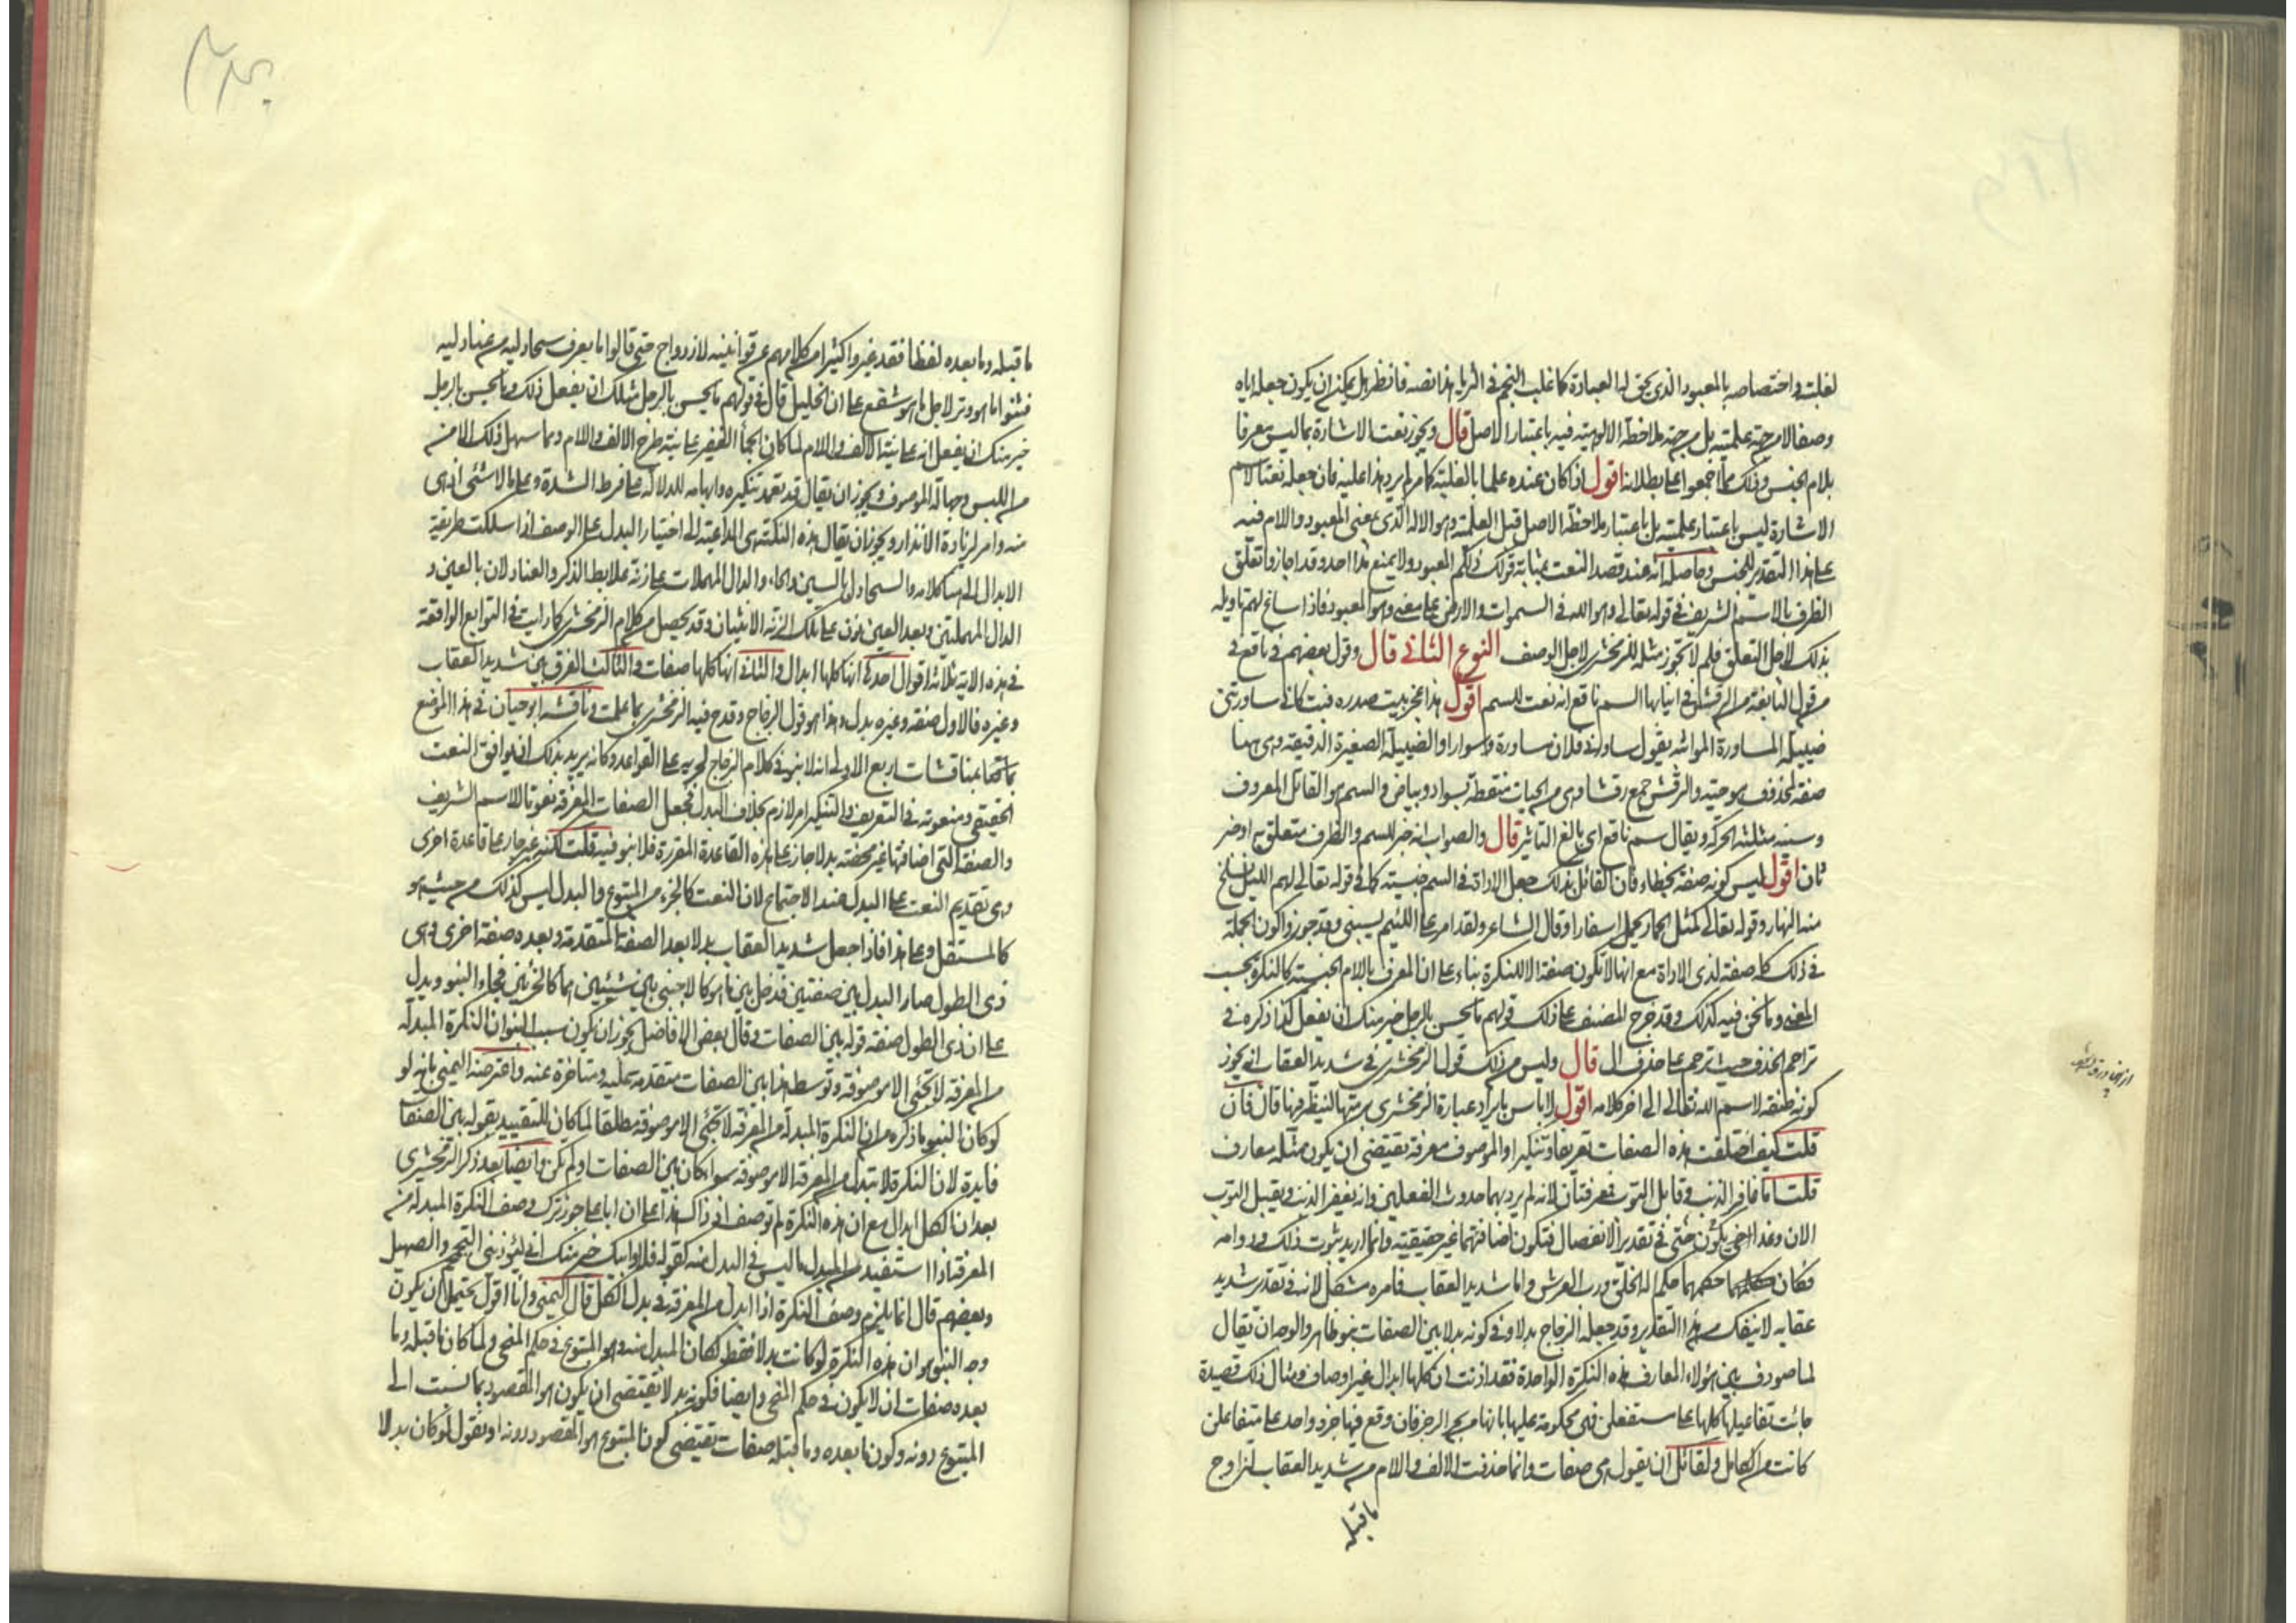 لغلبته واختصاصه بالمعبود الذي يحق له العبادة كما غلب النجم في الثريا هذا نصه فانظر هل يمكن ان يكون جعله اياه
وصفا لا من جهة علميته بل من جهة ملاحظة الالوهيته فيه باعتبار الاصل قال ويجوز نعت الاشارة بما ليس معرفا
بلام الجنس وذلك مما اجمعوا على بطلانه اقول اذا كان عنده علما بالغلبة كما مر لم يرد هذا عليه فان جعله نعتا لاسم
الاشارة ليس باعتبار علميته بل باعتبار ملاحظة الاصل قبل العلمية وهو الاله الذي بمعنى المعبود واللام فيه
على هذا التقدير للجنس وحاصله انه عند قصد النعت بمثابة قولك ذلكم المعبود ولا يمنع هذا احد وقد اجازوا تعلق
الظرف بالاسم الشريف في قوله تعالى وهو الله في السموات والارض على معنى وهو المعبود فاذا ساغ لهم تاويله
بذلك لاجل التعلق فلم لا يجوز مثله للزمخشري لاجل الوصف النوع الثاني قال وقول بعضهم في ناقع في
من قول النابغة من الرقش في انيابها السم ناقع انه نعت للسم اقول هذا عجز بيت صدره فبت كاني ساورتني
ضييلة المساورة المواثبة يقول ساورني فلان مساورة وسوارا والضييلة الصغيرة الدقيقة وهي هنا
صفة لمحذوف هو حية والرقش جمع رقشا وهي من الحيات منقطة بسواد وبياض والسم هو القاتل المعروف
وسينه مثلثة الحركة ويقال سم ناقع اي بالغ التاثير قال والصواب انه خبر للسم والظرف متعلق به او خبر
ثان اقول ليس كونه صفة بخطاء فان القائل بذلك جعل الاداة في السم جنسية كما في قوله تعالى واية لهم الليل نسلخ
منه النهار وقوله تعالى كمثل الحمار يحمل اسفارا وقال الشاعر ولقد امر على اللئيم يسبني وقد جوزوا كون الجملة
في ذلك كله صفة لذي الاداة مع انها لا تكون صفة الا للنكرة بناء على ان المعرف باللام الجنسية كالنكرة بحسب
المعنى وما نحن فيه كذلك وقد خرج المصنف على ذلك قولهم ما يحسن بالرجل خير منك ان يفعل كذا ذكره في
تراجم الحذف حيث ترجم على حذف ال قال وليس من ذلك قول الزمخشري في شديد العقاب انه يجوز
كونه صفة لاسم الله تعالى الى اخر كلامه اقول لا باس بايراد عبارة الزمخشري برمتها لينظر فيها قال فان
قلت كيف اختلفت هذه الصفات تعريفا وتنكيرا والموصوف معرفة يقتضي ان يكون مثله معارف
قلت اما غافر الذنب وقابل التوب فمعرفتان لانه لم يرد بهما حدوث الفعلين وانه يغفر الذنب ويقبل التوب
الان وغدا حتى يكون في تقدير الانفصال فتكون اضافتهما غير حقيقية وانما اريد ثبوت ذلك ودوامه
فكان حكمهما حكم اله الخلق ورب العرش واما شديد العقاب فامره مشكل لانه في تقدير شديد
عقابه لا ينفك من هذا التقدير وقد جعله الزجاج بدلا وفي كونه بدلا بين الصفات نبو ظاهر والوجه ان يقال
لما صودف بين هؤلاء المعارف هذه النكرة الواحدة فقد اذنت ان كلها ابدال غير اوصاف ومثال ذلك قصيدة
جائت تفاعيلها كلها على مستفعلن فهي محكومة عليها بانها من بحر الرجز فان وقع فيها جزء واحد على متفاعلن
كانت من الكامل ولقائل ان يقول هي صفات وانما حذفت الالف واللام من شديد العقاب ليزاوج
ما قبله
ما قبله وما بعده لفظا فقد غيروا كثيرا من كلامهم عن قوانينه لازدواج حتى قالوا ما يعرف سحادليه من عنادليه
فثنوا ما هو وتر لاجل ما هو شفع على ان الخليل قال في قولهم ما يحسن بالرجل مثلك ان يفعل ذلك وما يحسن بالرجل
خير منك ان يفعل انه على نية الالف واللام لما كان الجماء الغفير على نية طرح الالف واللام ومما سهل ذلك الامن
من اللبس وجهالة الموصوف ويجوز ان يقال قد تعمد تنكيره وابهامه للدلالة على فرط الشدة وعلى ما لا شئ ادهى
منه وامر لزيادة الانذار ويجوز ان يقال هذه النكتة هي الداعية الى اختيار البدل على الوصف اذا سلكت طريقة
الابدال الى هنا كلامه والسحادل بالسين والحاء والدال المهملات على زنة علابط الذكر والعنادلان بالعين و
الدال المهملتين وبعد العين نون على تلك الزنة الانثيان وقد يحصل من كلام الزمخشري كما رايت في التوابع الواقعة
في هذه الاية ثلاثة اقوال احدها انها كلها ابدال والثاني انها كلها صفات والثالث الفرق بين شديد العقاب
وغيره فالاول صفة وغيره بدل وهذا هو قول الزجاج وقدح فيه الزمخشري بما علمت وناقشه ابو حيان في هذا الموضع
بمناقشات اربع الاولى انه لا نبو في كلام الزجاج لجريه على القواعد وكانه يريد بذلك انه يوافق النعت
الحقيقي ومنعوته في التعريف والتنكير امر لازم بخلاف البدل فجعل الصفات المعرفة نعوتا للاسم الشريف
والصفة التي اضافتها غير محضة بدلا جاز على هذه القاعدة المقررة فلا نبو فيه قلت لكنه غير جار على قاعدة اخرى
وهي تقديم النعت على البدل عند الاجتماع لان النعت كالجزء من المتبوع والبدل ليس كذلك من حيث هو
كالمستقل وعلى هذا فاذا جعل شديد العقاب بدلا بعد الصفة المتقدمة وبعده صفة اخرى وهي
ذي الطول صار البدل بين صفتين فدخل بين ما هو كالاجنبي بين شيئين هما كالجزئين فجاء النبو ويدل
على ان ذي الطول صفة قوله بين الصفات وقال بعض الافاضل يجوز ان يكون سبب النبو ان النكرة المبدلة
من المعرفة لا تجئ الا موصوفة وتوسط هذا بين الصفات متقدمة عليه ومتاخرة عنه واعترضه اليمني بانه لو
لو كان النبو ما ذكره من ان النكرة المبدلة من المعرفة لا تجئ الا موصوفة مطلقا لما كان للتقييد بقوله بين الصفات
فايدة لان النكرة لا تبدل من المعرفة الا موصوفة سواء كان بين الصفات او لم يكن وايضا بعد ذكر الزمخشري
بعد ان الكل ابدال مع ان هذه النكرة لم توصف اذ ذاك هذا على ان ابا علي جوز ترك وصف النكرة المبدلة من
المعرفة اذا استفيد من المبدل ما ليس في البدل منه كقوله فلا وابيك خير منك اني ليؤذيني التحمحم والصهيل
وبعضهم قال انما يلزم وصف النكرة اذا ابدل من المعرفة في بدل الكل قال اليمني وانا اقول يحتمل ان يكون
وجه النبو هو ان هذه النكرة لو كانت بدلا فقط لكان المبدل منه وهو المتبوع في حكم المنحى ولما كان ما قبله وما
بعده صفات ان لا يكون في حكم المنحى وايضا فكونه بدلا يقتضي ان يكون هو المقصود بما نسبت الى
المتبوع دونه وكون ما بعده وما قبله صفات يقتضي كون المتبوع هو المقصود دونه او نقول لو كان بدلا